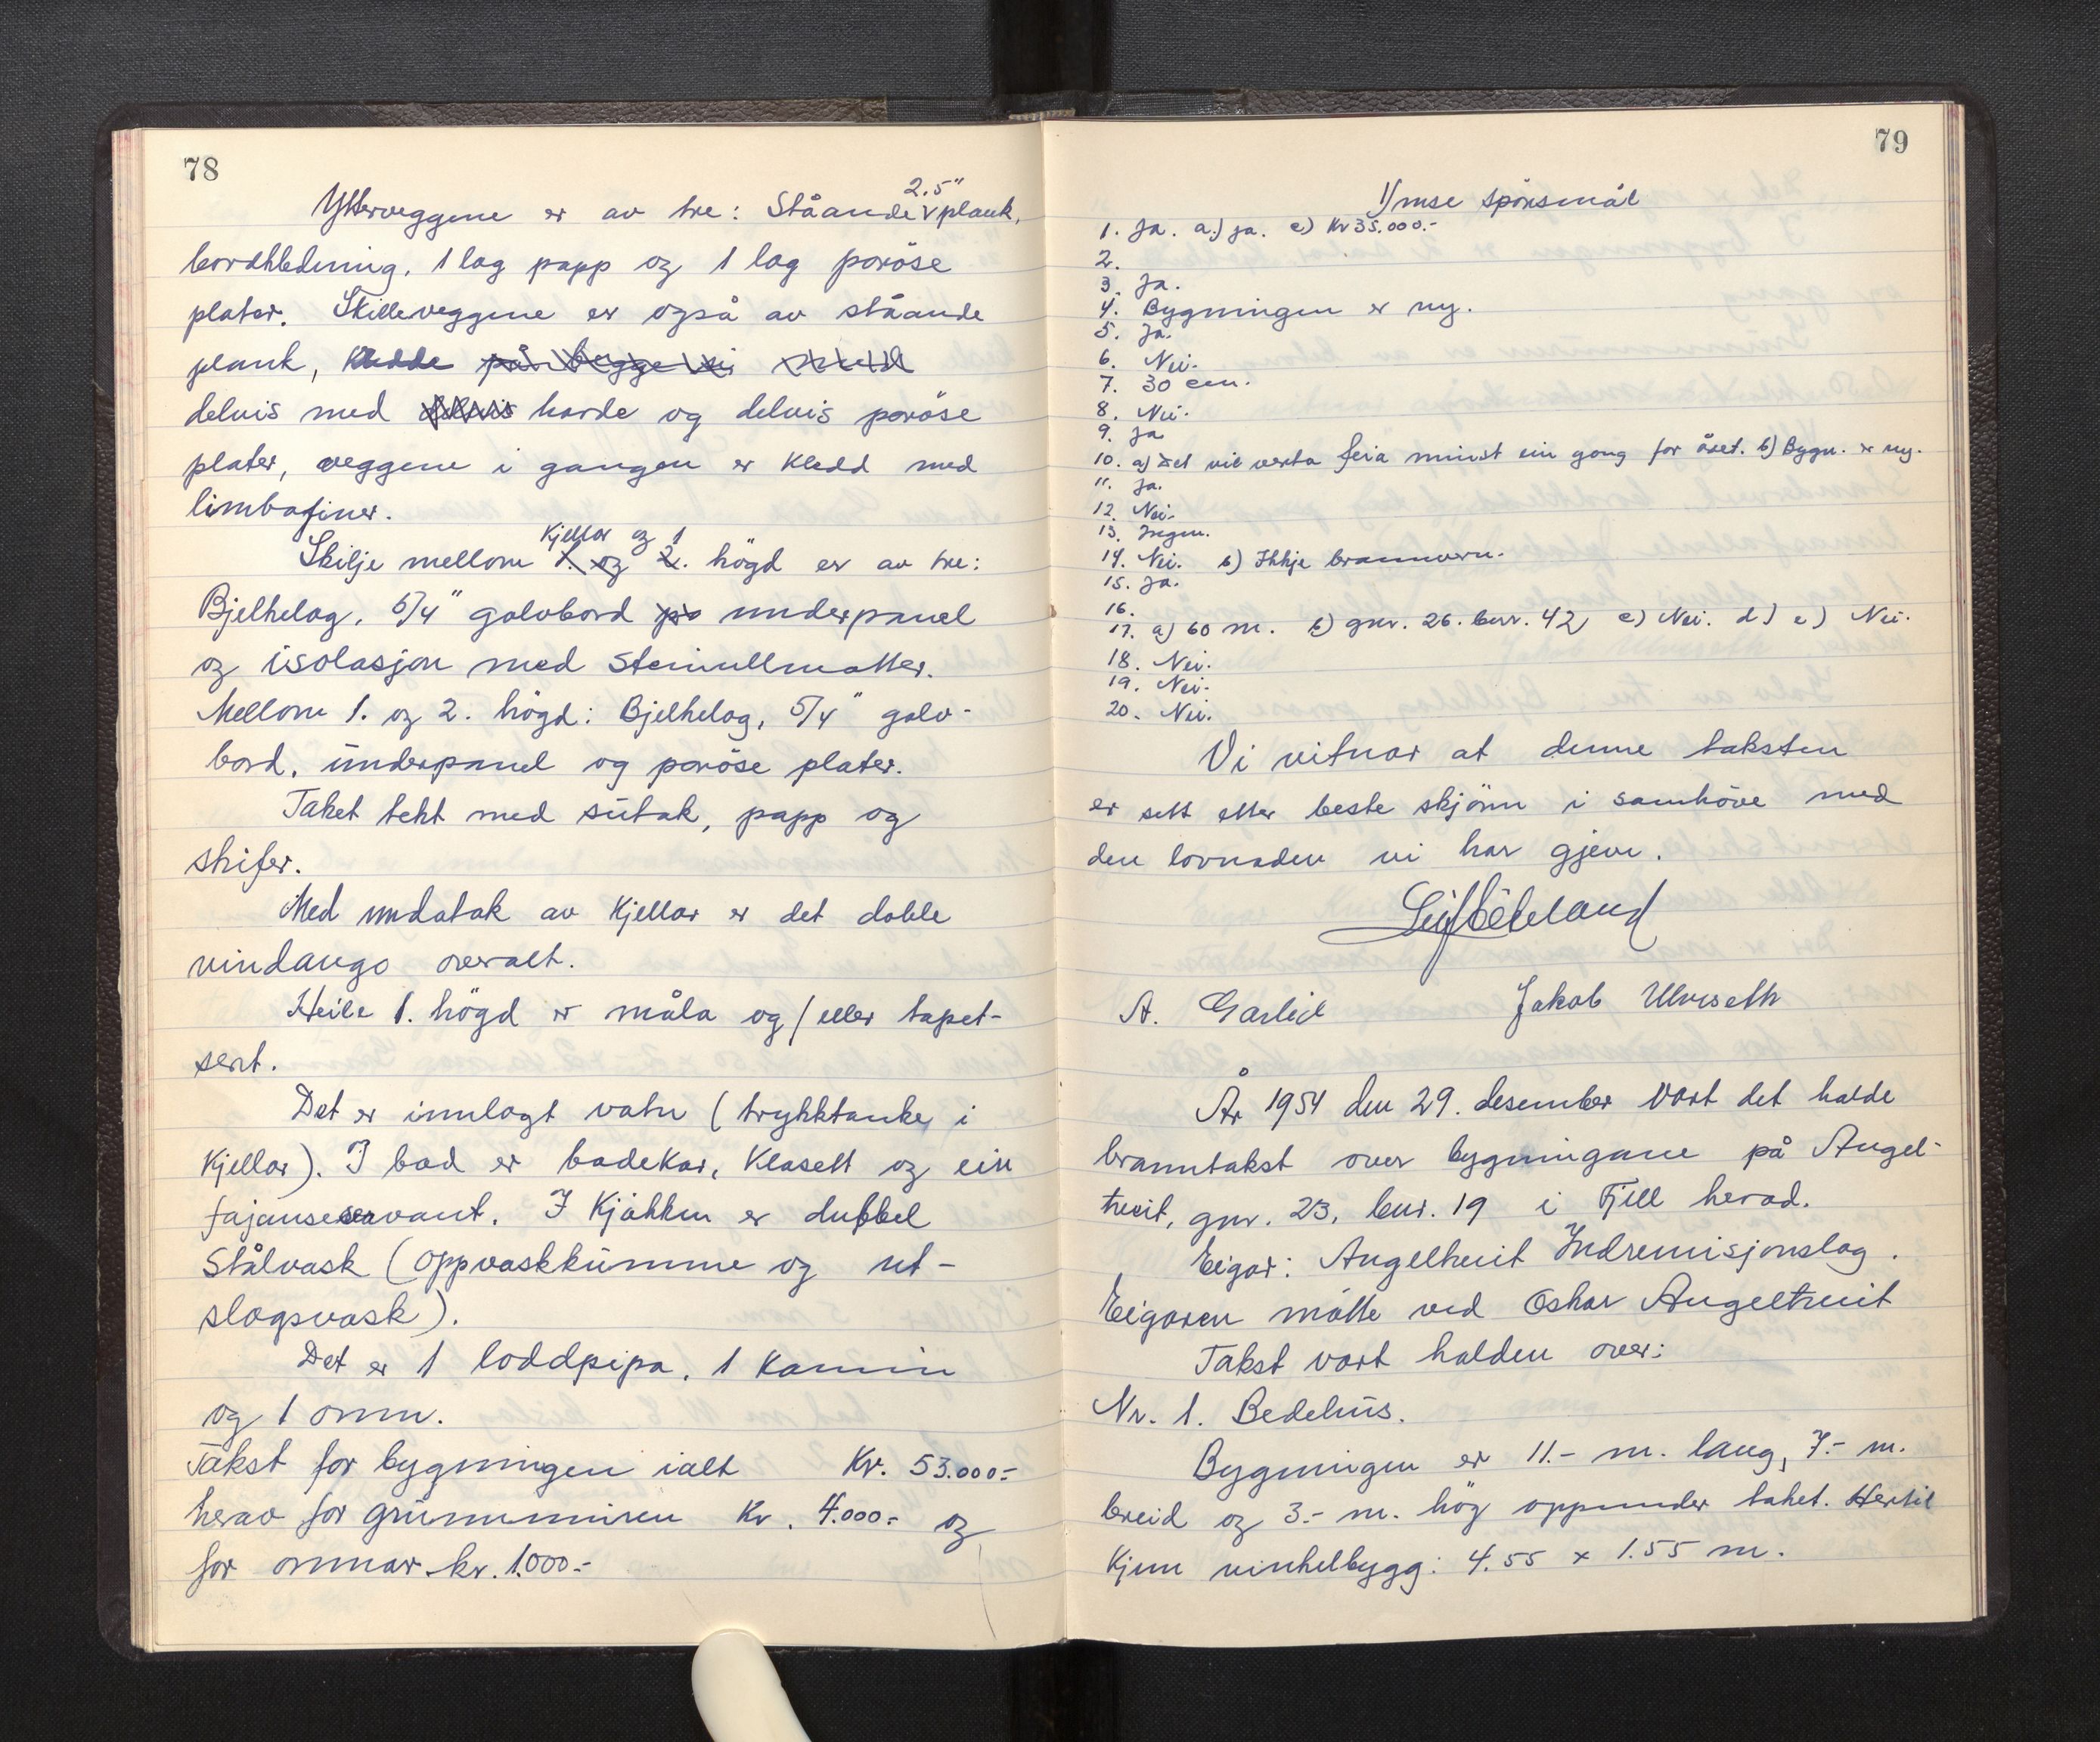 78
2.5"
Ytterveggene er av tre: Ståande v plank,
bordkledning, 1 lag papp og 1 lag porøse
plater. Skilleveggene er også av ståande
plank, kledde på begge si med
delvis med delvis harde og delvis porøse
plater, veggene i gangen er kledd med
limbafiner.
Kjellar og 1
Skilje mellom 1. og 2. högd er av tre:
Bjelkelag, 5/4" golvbord po underpanel
og isolasjon med steinullmatter.
Mellom 1. og 2. högd: Bjelkelag, 5/4" golv-
bord, underpanel og poröse plater.
Taket tekt med sutak, papp og
skifer.
Med undatak av kjellar er det doble
vindaugo overalt.
Heile 1. högd er måla og / eller tapet-
sert.
Det er innlagt vatn (trykktanke i
kjellar). I bad er badekar, klosett og ein
fajanseservant. I kjökken er dubbel
stålvask (oppvaskkumme og ut-
slagsvask).
Det er 1 loddpipa, 1 kamin
og 1 omn.
Takst for bygningen ialt Kr. 53.000.-
herav for grunnmuren Kr. 4.000.- og
for omnar kr. 1.000.-
79
Ymse spörsmål
1. Ja. a) ja. c) Kr 35.000.-
2.
3. Ja.
4. Bygningen er ny.
5. Ja.
6. Nei.
7. 30 cm.
8. Nei.
9. Ja
10. a) Det vil verta feia minst ein gong for året. b) Bygn. er ny.
11. Ja.
12. Nei.
13. Ingen.
14. Nei. b) Ikkje brannvern.
15. Ja.
16.
17. a) 60 m. b) gnr. 26. bnr. 42 c) Nei. d) e) Nei.
18. Nei.
19. Nei.
20. Nei.
Vi vitnar at denne taksten
er sett etter beste skjönn i samhöve med
den lovnaden vi har gjeve.
A. Garlid Jakob Ulveseth
År 1954 den 29. desember vart det halde
branntakst over bygningane på Angel-
tveit, gnr. 23, bnr. 19 i Fjell herad.
Eigar: Angeltveit Indremisjonslag.
Eigaren måtte ved Oskar Angeltveit
Takst vart halden over:
Nr. 1. Bedehus.
Bygningen er 11.- m. lang, 7.- m.
breid og 3.- m. hög oppunder taket. Hertil
kjem vinkelbygg: 4.55 x 1.55 m.